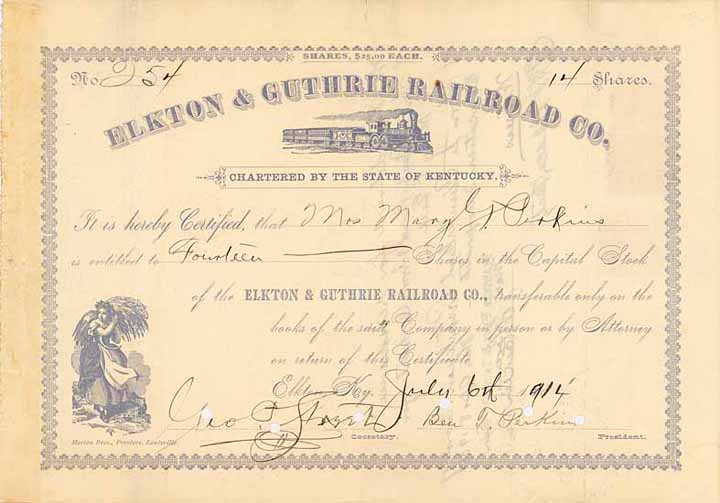 SHARES, $25.00 EACH.
No 254 14 Shares.
ELKTON & GUTHRIE RAILROAD CO.
CHARTERED BY THE STATE OF KENTUCKY.
It is hereby Certified, that Mrs Mary G. Perkins
is entitled to Fourteen Shares in the Capital Stock
of the ELKTON & GUTHRIE RAILROAD CO., transferable only on the
books of the said Company in person or by Attorney
on return of this Certificate
Elkton Ky. July 6th 1914
Geo Ben T. Perkins
Secretary. President.
Morton Bros., Printers, Louisville.